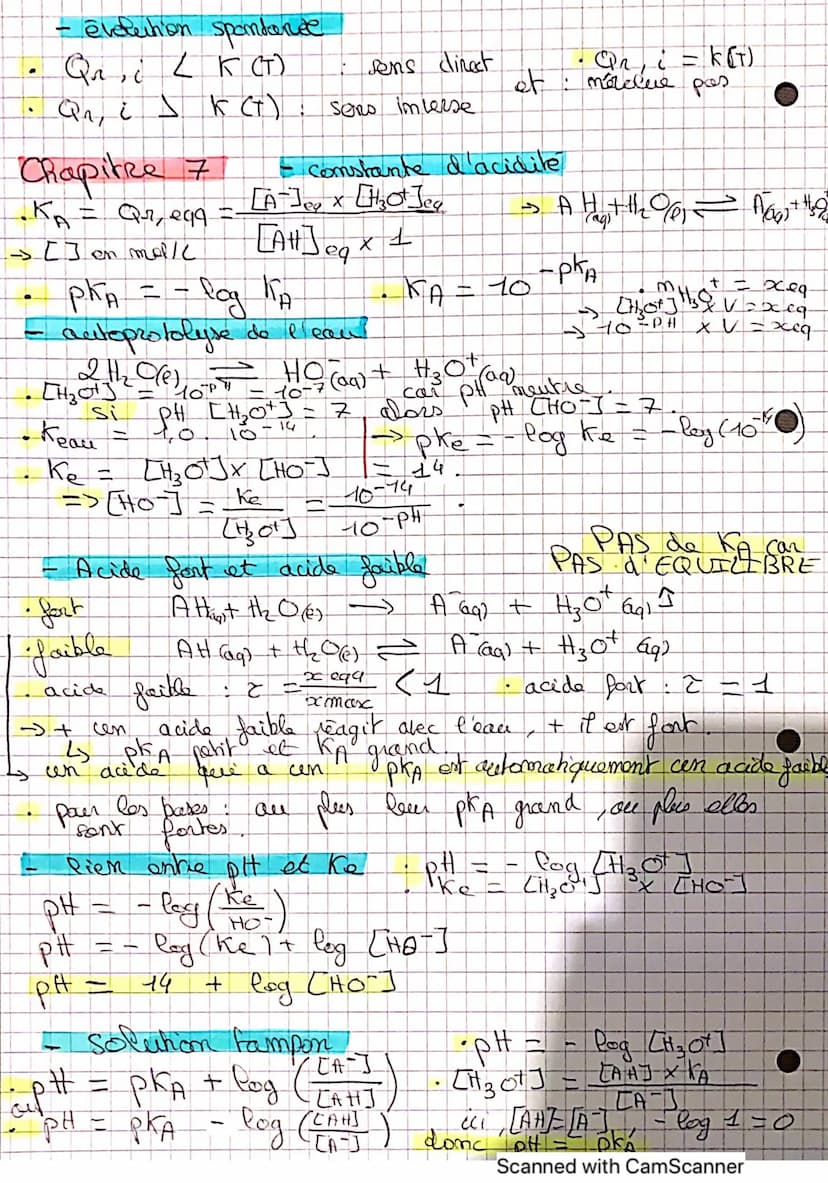 - évolution spontanée
. Qr,i < K(T) : sens direct . Qr,i = K(T)
. Qr,i > K(T) : sens inverse et : n'évolue pas
Chapitre 7 - constante d'acidité
. KA = Qr,eqq = [A-]eq x [H3O+]eq / [AH]eq x 1 → AH(aq) + H2O(l) ⇌ A-(aq) + H3O
→ [ ] en mol/L
. pKA = - log KA . KA = 10^-pKA . nH3O+ = xeq
→ [H3O+] x V = xeq
→ 10^-pH x V = xeq
- autoprotolyse de l'eau
2H2O(l) ⇌ HO-(aq) + H3O+(aq)
. [H3O+] = 10^-pH = 10^-7 car pH neutre.
si pH [H3O+] = 7 alors pH [HO-] = 7.
. Keau = 1,0.10^-14. => pKe = - log Ke = - log(10^-14)
= 14.
. Ke = [H3O+] x [HO-]
=> [HO-] = Ke / [H3O+] = 10^-14 / 10^-pH .
- Acide fort et acide faible PAS de KA car
PAS d'EQUILIBRE
. fort AH(aq) + H2O(l) → A-(aq) + H3O+(aq)
. faible AH(aq) + H2O(l) ⇌ A-(aq) + H3O+(aq)
. acide faible : τ = x eqq / x max < 1 . acide fort : τ = 1
→ + un acide faible réagit avec l'eau, + il est fort.
↳ pKA petit et KA grand.
↳ un acide qui a un pKA est automatiquement un acide faible
. pour les bases : au plus leur pKA grand, au plus elles
sont fortes.
- lien entre pH et Ke : pH = - log [H3O+]
Ke = [H3O+] x [HO-]
pH = - log (Ke / HO-)
pH = - log (Ke) + log [HO-]
pH = 14 + log [HO-]
- solution tampon . pH = - log [H3O+]
. pH = pKA + log ([A-] / [AH]) . [H3O+] = [AH] x KA / [A-]
ou
. pH = pKA - log ([AH] / [A-]) ici, [AH] = [A-], - log 1 = 0
donc pH = pKA
Scanned with CamScanner